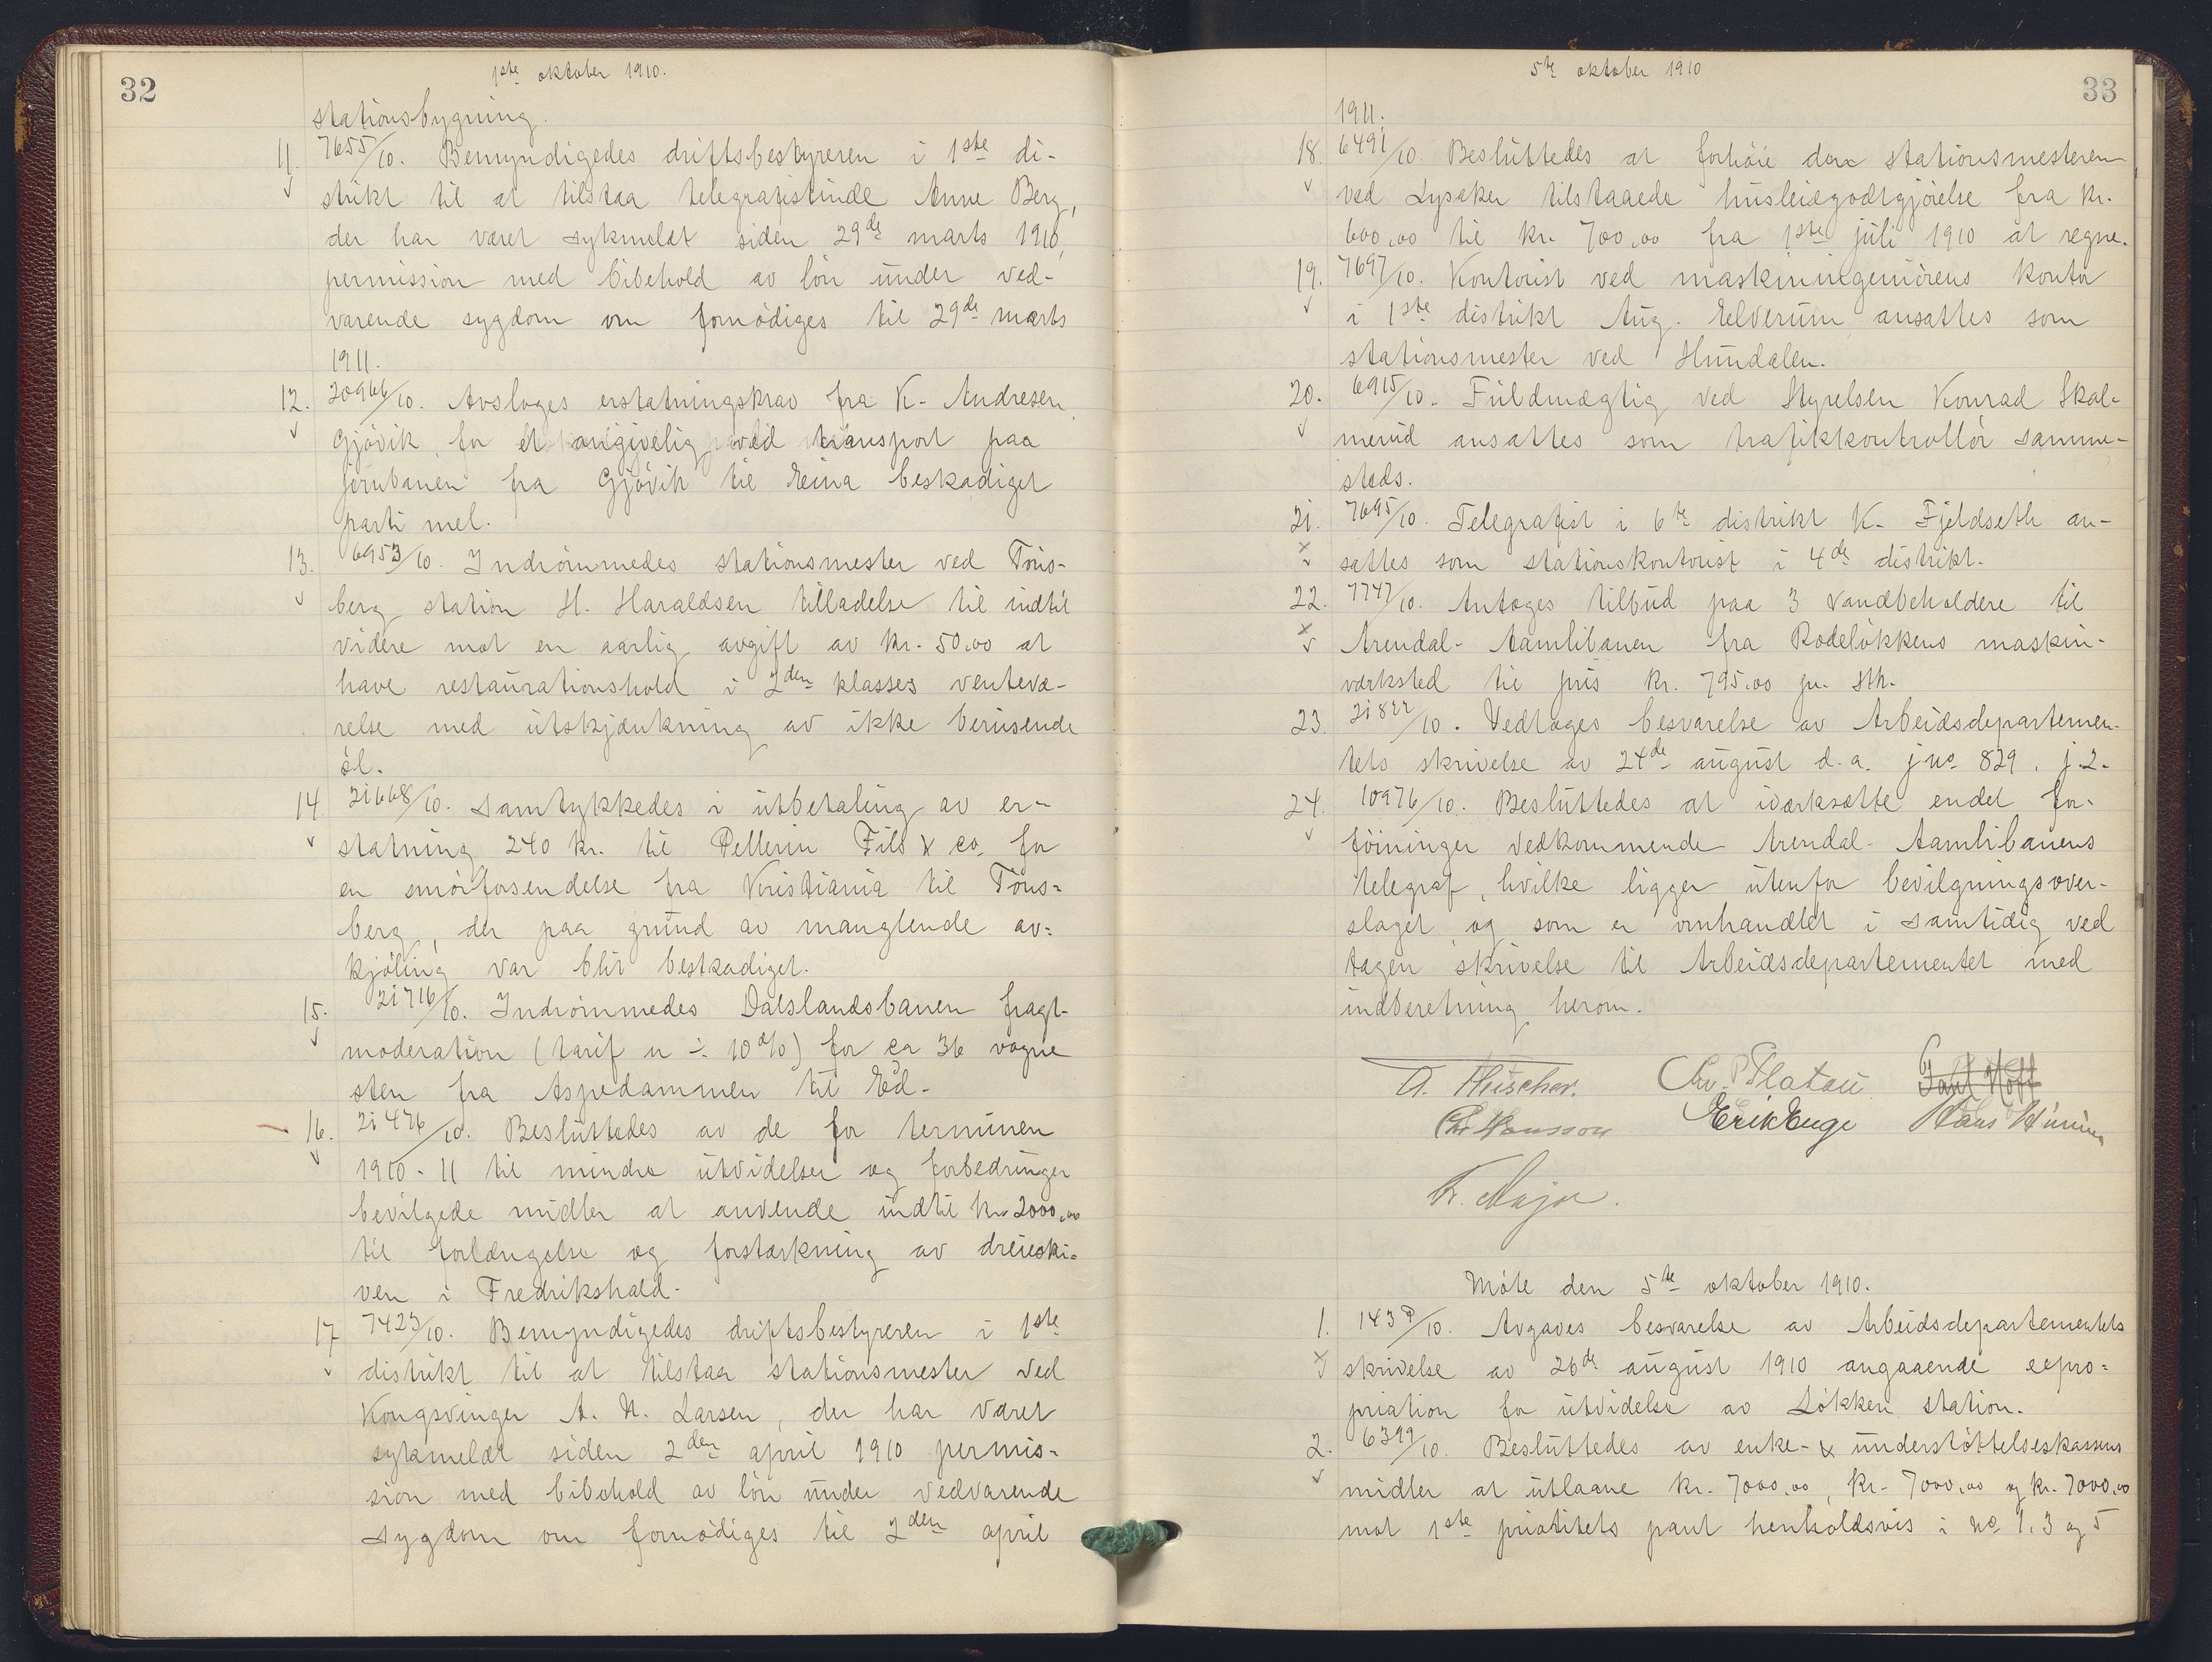 32
1ste oktober 1910.
stationsbygning.
11. 7655/10. Bemyndigedes driftsbestyreren i 1ste di-
strikt til at tilstaa telegrafistinde Anne Berg,
der har været sykmeldt siden 29de marts 1910,
permission med bibehold av lön under ved-
varende sygdom om fornödiges til 29de marts
1911.
12. 20966/10. Avsloges erstatningskrav fra K. Andresen
Gjövik, for et angivelig ved transport paa
jernbanen fra Gjövik til Reina beskadiget
parti mel.
13. 6953/10. Indrömmedes stationsmester ved Töns-
berg station H. Haraldsen tilladelse til indtil
videre mot en aarlig avgift av kr. 50,00 at
have restaurationshold i 2den klasses ventevæ-
relse med utskjænkning av ikke berusende
öl.
14. 21668/10. Samtykkedes i utbetaling av er-
statning 240 kr. til Pellerin Fils & co. for
en smörforsendelse fra Kristiania til Töns-
berg, der paa grund av manglende av-
kjöling var blit beskadiget.
15. 21716/10. Indrömmedes Dalslandsbanen fragt-
moderation (tarif u ÷ 10%) for ca 36 vogne
sten fra Aspedammen til Ed.
16. 21476/10. Besluttedes av de for terminen
1910-11 til mindre utvidelser og forbedringer
bevilgede midler at anvende indtil kr. 2000,00
til forlængelse og forstærkning av dreieski-
ven i Fredrikshald.
17. 7423/10. Bemyndigedes driftsbestyreren i 1ste
distrikt til at tilstaa stationsmester ved
Kongsvinger A. N. Larsen, der har været
sykmeldt siden 2den april 1910 permis-
sion med bibehold av lön under vedvarende
sygdom om fornödiges til 2den april
33
5te oktober 1910
1911.
18. 6491/10. Besluttedes at forhöie den stationsmesteren
ved Lysaker tilstaaede husleiegodtgjörelse fra kr.
600,00 til kr. 700,00 fra 1ste juli 1910 at regne.
19. 7697/10. Kontorist ved maskiningeniörens kontor
i 1ste distrikt Aug. Elverum ansattes som
stationsmester ved Hundalen.
20. 6915/10. Fuldmægtig ved Styrelsen Konrad Skal-
merud ansattes som trafikkontrollör samme-
steds.
21. 7695/10. Telegrafist i 6te distrikt K. Fjeldseth an-
sattes som stationskontorist i 4de distrikt.
22. 7747/10. Antoges tilbud paa 3 vandbeholdere til
Arendal-Aamlibanen fra Rodelökkens maskin-
værksted til pris kr. 795,00 pr. stk.
23. 21822/10. Vedtoges besvarelse av Arbeidsdepartemen-
tets skrivelse av 24de august d.a. jno 829. j.2.
24. 10976/10. Besluttedes at iværksætte endel for-
föininger vedkommende Arendal-Aamlibanens
telegraf, hvilke ligger utenfor bevilgningsover-
slaget og som er omhandlet i samtidig ved
tagen skrivelse til Arbeidsdepartementet med
indberetning herom.
A. Fleischer. Chr. Platou
Chr. Hansson Erik Enge
Möte den 5te oktober 1910.
1. Avgaves besvarelse av Arbeidsdepartementets
skrivelse av 26de august 1910 angaaende expro-
priation for utvidelse av Lökken station.
2. 6399/10. Besluttedes av enke- & understöttelseskassens
midler at utlaane kr. 7000,00, kr. 7000,00 og kr. 7000,00
mot 1ste prioritets pant henholdsvis i no 1, 3 og 5